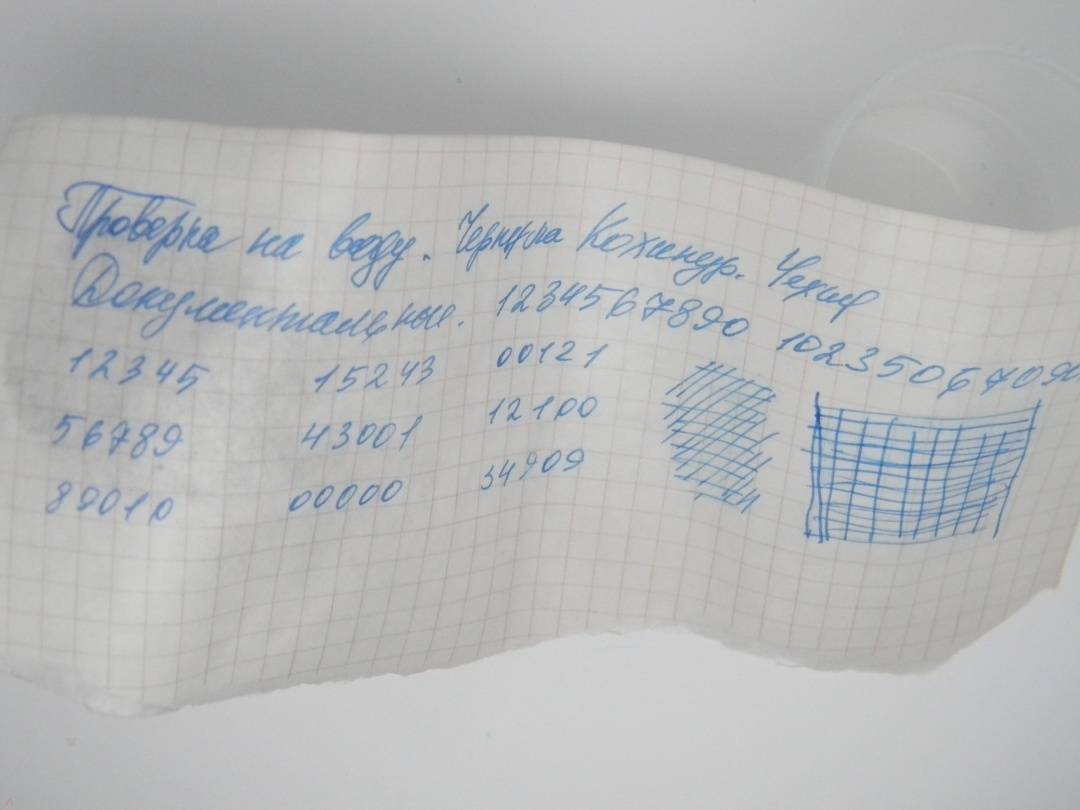 Проверка на воду. Чернила Кохинур. Чехия
Документальные. 1234567890 1023506709
12345 15243 00121
56789 43001 12100
89010 00000 34909